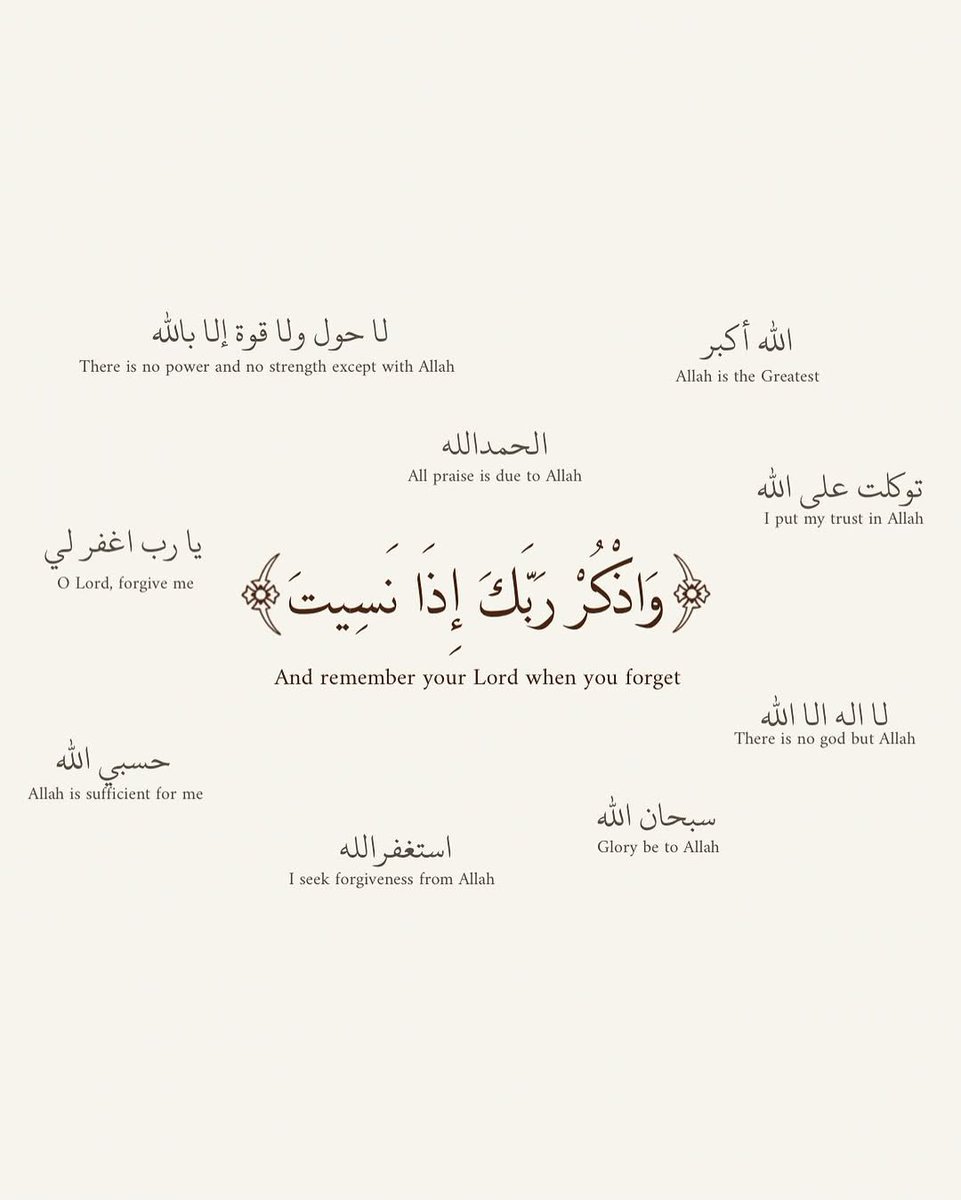 لا حول ولا قوة إلا بالله
There is no power and no strength except with Allah
الله أكبر
Allah is the Greatest
الحمدالله
All praise is due to Allah
توكلت على الله
I put my trust in Allah
يا رب اغفر لي
O Lord, forgive me
﴿وَاذْكُرْ رَبَّكَ إِذَا نَسِيتَ﴾
And remember your Lord when you forget
لا اله الا الله
There is no god but Allah
حسبي الله
Allah is sufficient for me
سبحان الله
Glory be to Allah
استغفرالله
I seek forgiveness from Allah